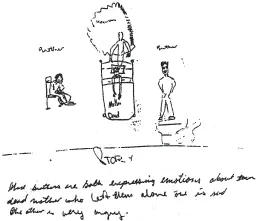 Brother
Brother
Mother
Dead
STORY
are both expressing emotions about their
dead mother who left them alone one is sad
the other is very angry.